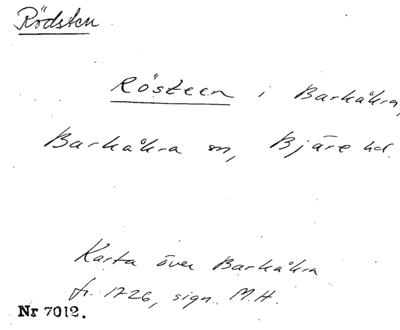 Rödsten
Rösteen i Barkåkra,
Barkåkra sn, Bjäre hd.
Karta över Barkåkra
fr. 1726, sign. M.H.
Nr 7012.